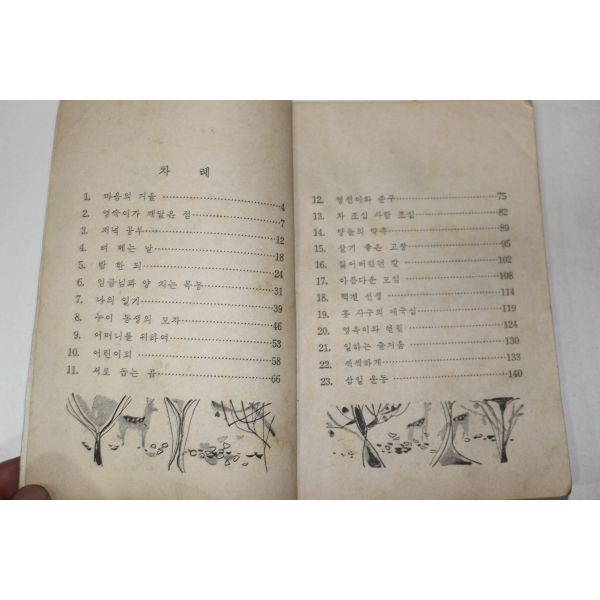 차 례
1. 마음의 거울 4
2. 영숙이가 깨달은 점 7
3. 저녁 공부 12
4. 비 베는 날 18
5. 밤 한 되 24
6. 임금님과 양 치는 목동 31
7. 나의 일기 39
8. 누이 동생의 모자 46
9. 어머니를 위하여 53
10. 어린이회 58
11. 서로 돕는 곰 66
12. 영선이와 준구 75
13. 차 조심 사람 조심 82
14. 양들의 약속 89
15. 살기 좋은 고장 95
16. 잃어버렸던 칼 102
17. 아름다운 모임 108
18. 선생 114
19. 홍 사구의 애국심 119
20. 영옥이와 연필 124
21. 일하는 즐거움 130
22. 씩씩하게 133
23. 삼일 운동 140